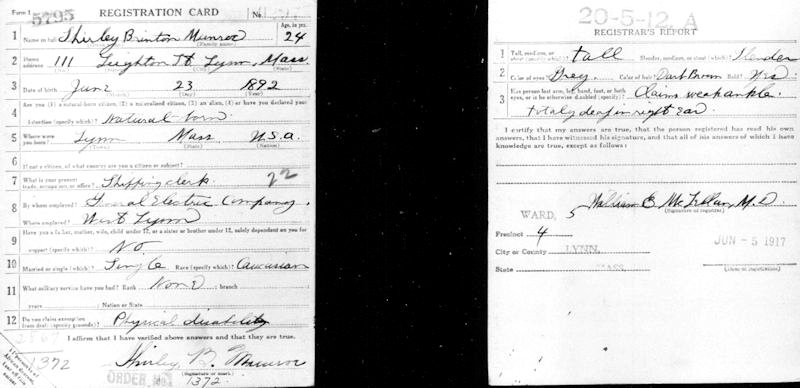 Form 1
5795
REGISTRATION CARD
No.
1 Name in full Shirley Brinton Munroe
(Family name)
Age, in yrs. 24
2 Home address 111 Leighton St Lynn, Mass
3 Date of birth June 23 1892
(Month) (Day) (Year)
4 Are you (1) a natural-born citizen, (2) a naturalized citizen, (3) an alien, (4) or have you declared your
intention (specify which)? Natural-born
5 Where were you born? Lynn Mass U.S.A.
(Town) (State) (Nation)
6 If not a citizen, of what country are you a citizen or subject?
7 What is your present trade, occupation, or office? Shipping clerk 22
8 By whom employed? General Electric Company,
Where employed? West Lynn
9 Have you a father, mother, wife, child under 12, or a sister or brother under 12, solely dependent on you for
support (specify which)? No
10 Married or single (which)? Single Race (specify which)? Caucasian
11 What military service have you had? Rank None ; branch
years ; Nation or State
12 Do you claim exemption from draft (specify grounds)? Physical disability
I affirm that I have verified above answers and that they are true.
Shirley B. Munroe
(Signature or mark)
1372
ORDER No. 1372
20-5-12. A
REGISTRAR'S REPORT
1 Tall, medium, or short (specify which)? tall Slender, medium, or stout (which)? Slender
2 Color of eyes? Grey Color of hair? Dark Brown Bald? No
3 Has person lost arm, leg, hand, foot, or both
eyes, or is he otherwise disabled (specify)? Claims weak ankle.
totaly deaf in right ear
I certify that my answers are true, that the person registered has read his own
answers, that I have witnessed his signature, and that all of his answers of which I have
knowledge are true, except as follows:
William E. McLellan, M.D.
(Signature of registrar)
WARD, 5
Precinct 4
City or County LYNN,
State MASS.
JUN - 5 1917
(Date of registration)